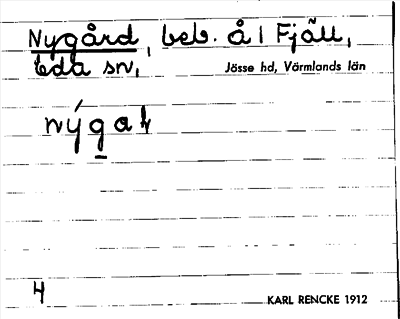 Nygård, beb. å 1 Fjäll,
Eda sn,
Jösse hd, Värmlands län
nýgaṯ
4
KARL RENCKE 1912